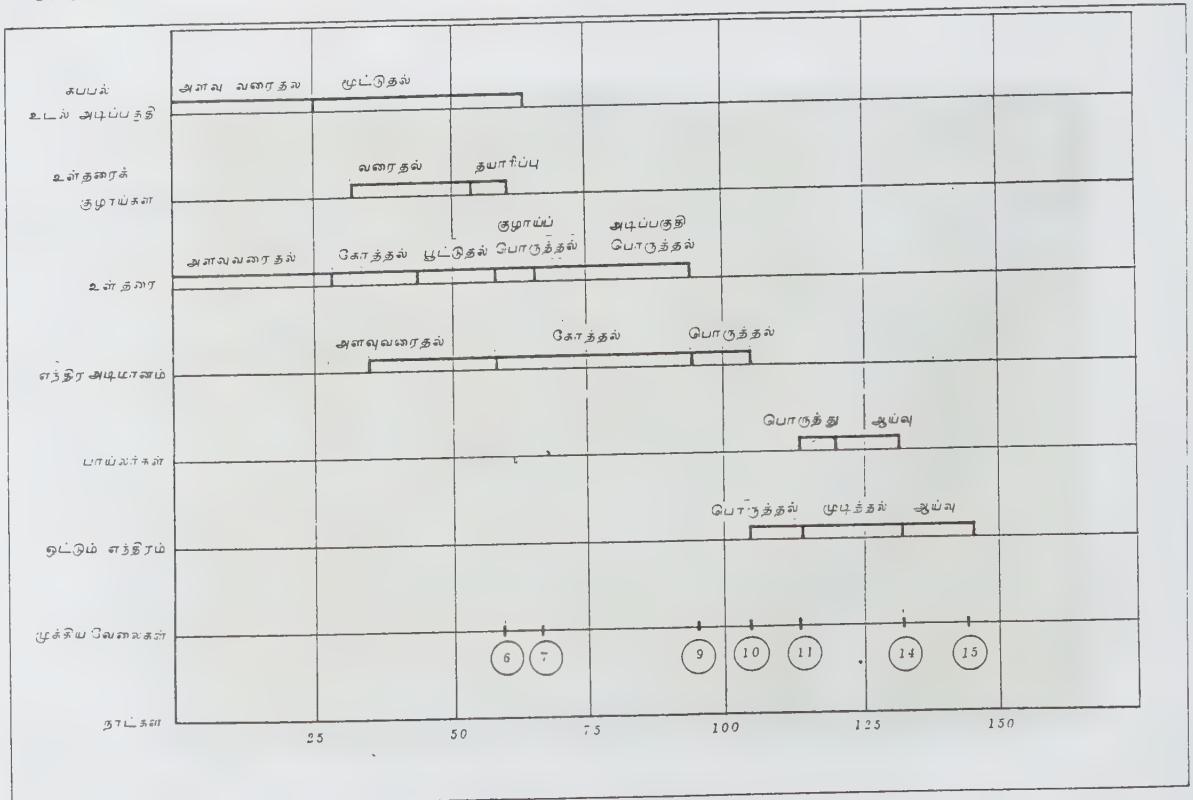 கப்பல்
உடல் அடிப்பகுதி
அளவு வரைதல் மூட்டுதல்
உள்தரைக்
குழாய்கள்
வரைதல் தயாரிப்பு
உள்தரை
அளவுவரைதல் கோத்தல் பூட்டுதல்
குழாய்ப்
பொருத்தல்
அடிப்பகுதி
பொருத்தல்
எந்திர அடிமானம்
அளவுவரைதல் கோத்தல் பொருத்தல்
பாய்லர்கள்
பொருத்து ஆய்வு
ஒட்டும் எந்திரம்
பொருத்தல் முடித்தல் ஆய்வு
முக்கிய வேலைகள்
6 7 9 10 11 14 15
நாட்கள்
25 50 75 100 125 150